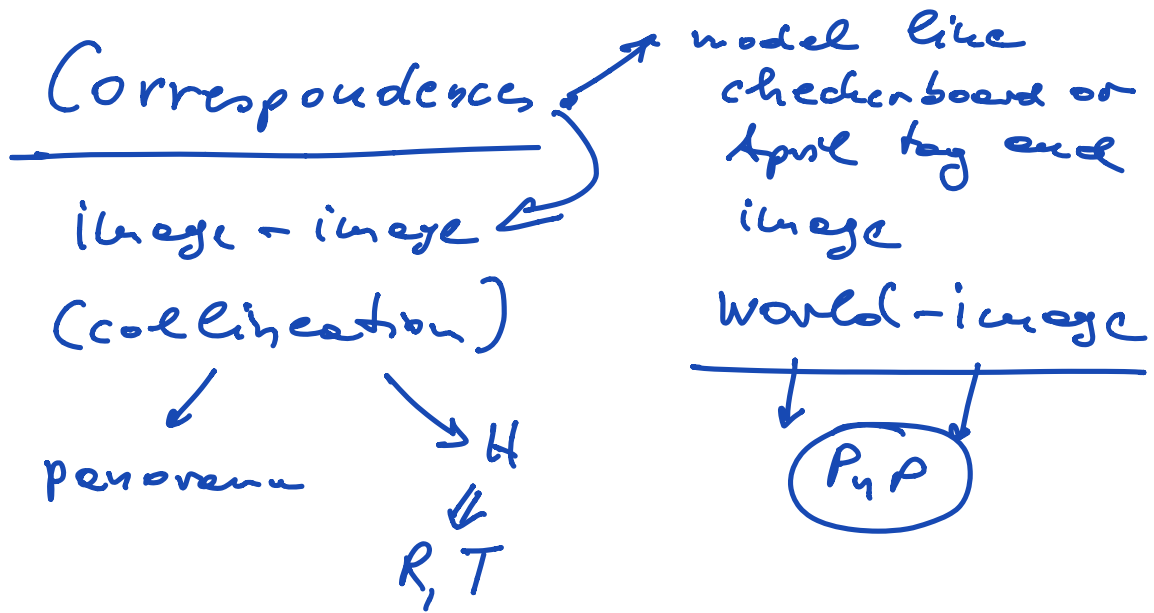 Correspondences
image - image
(collineation)
panorama
H
R, T
model like
checkerboard or
April tag and
image
world - image
PnP